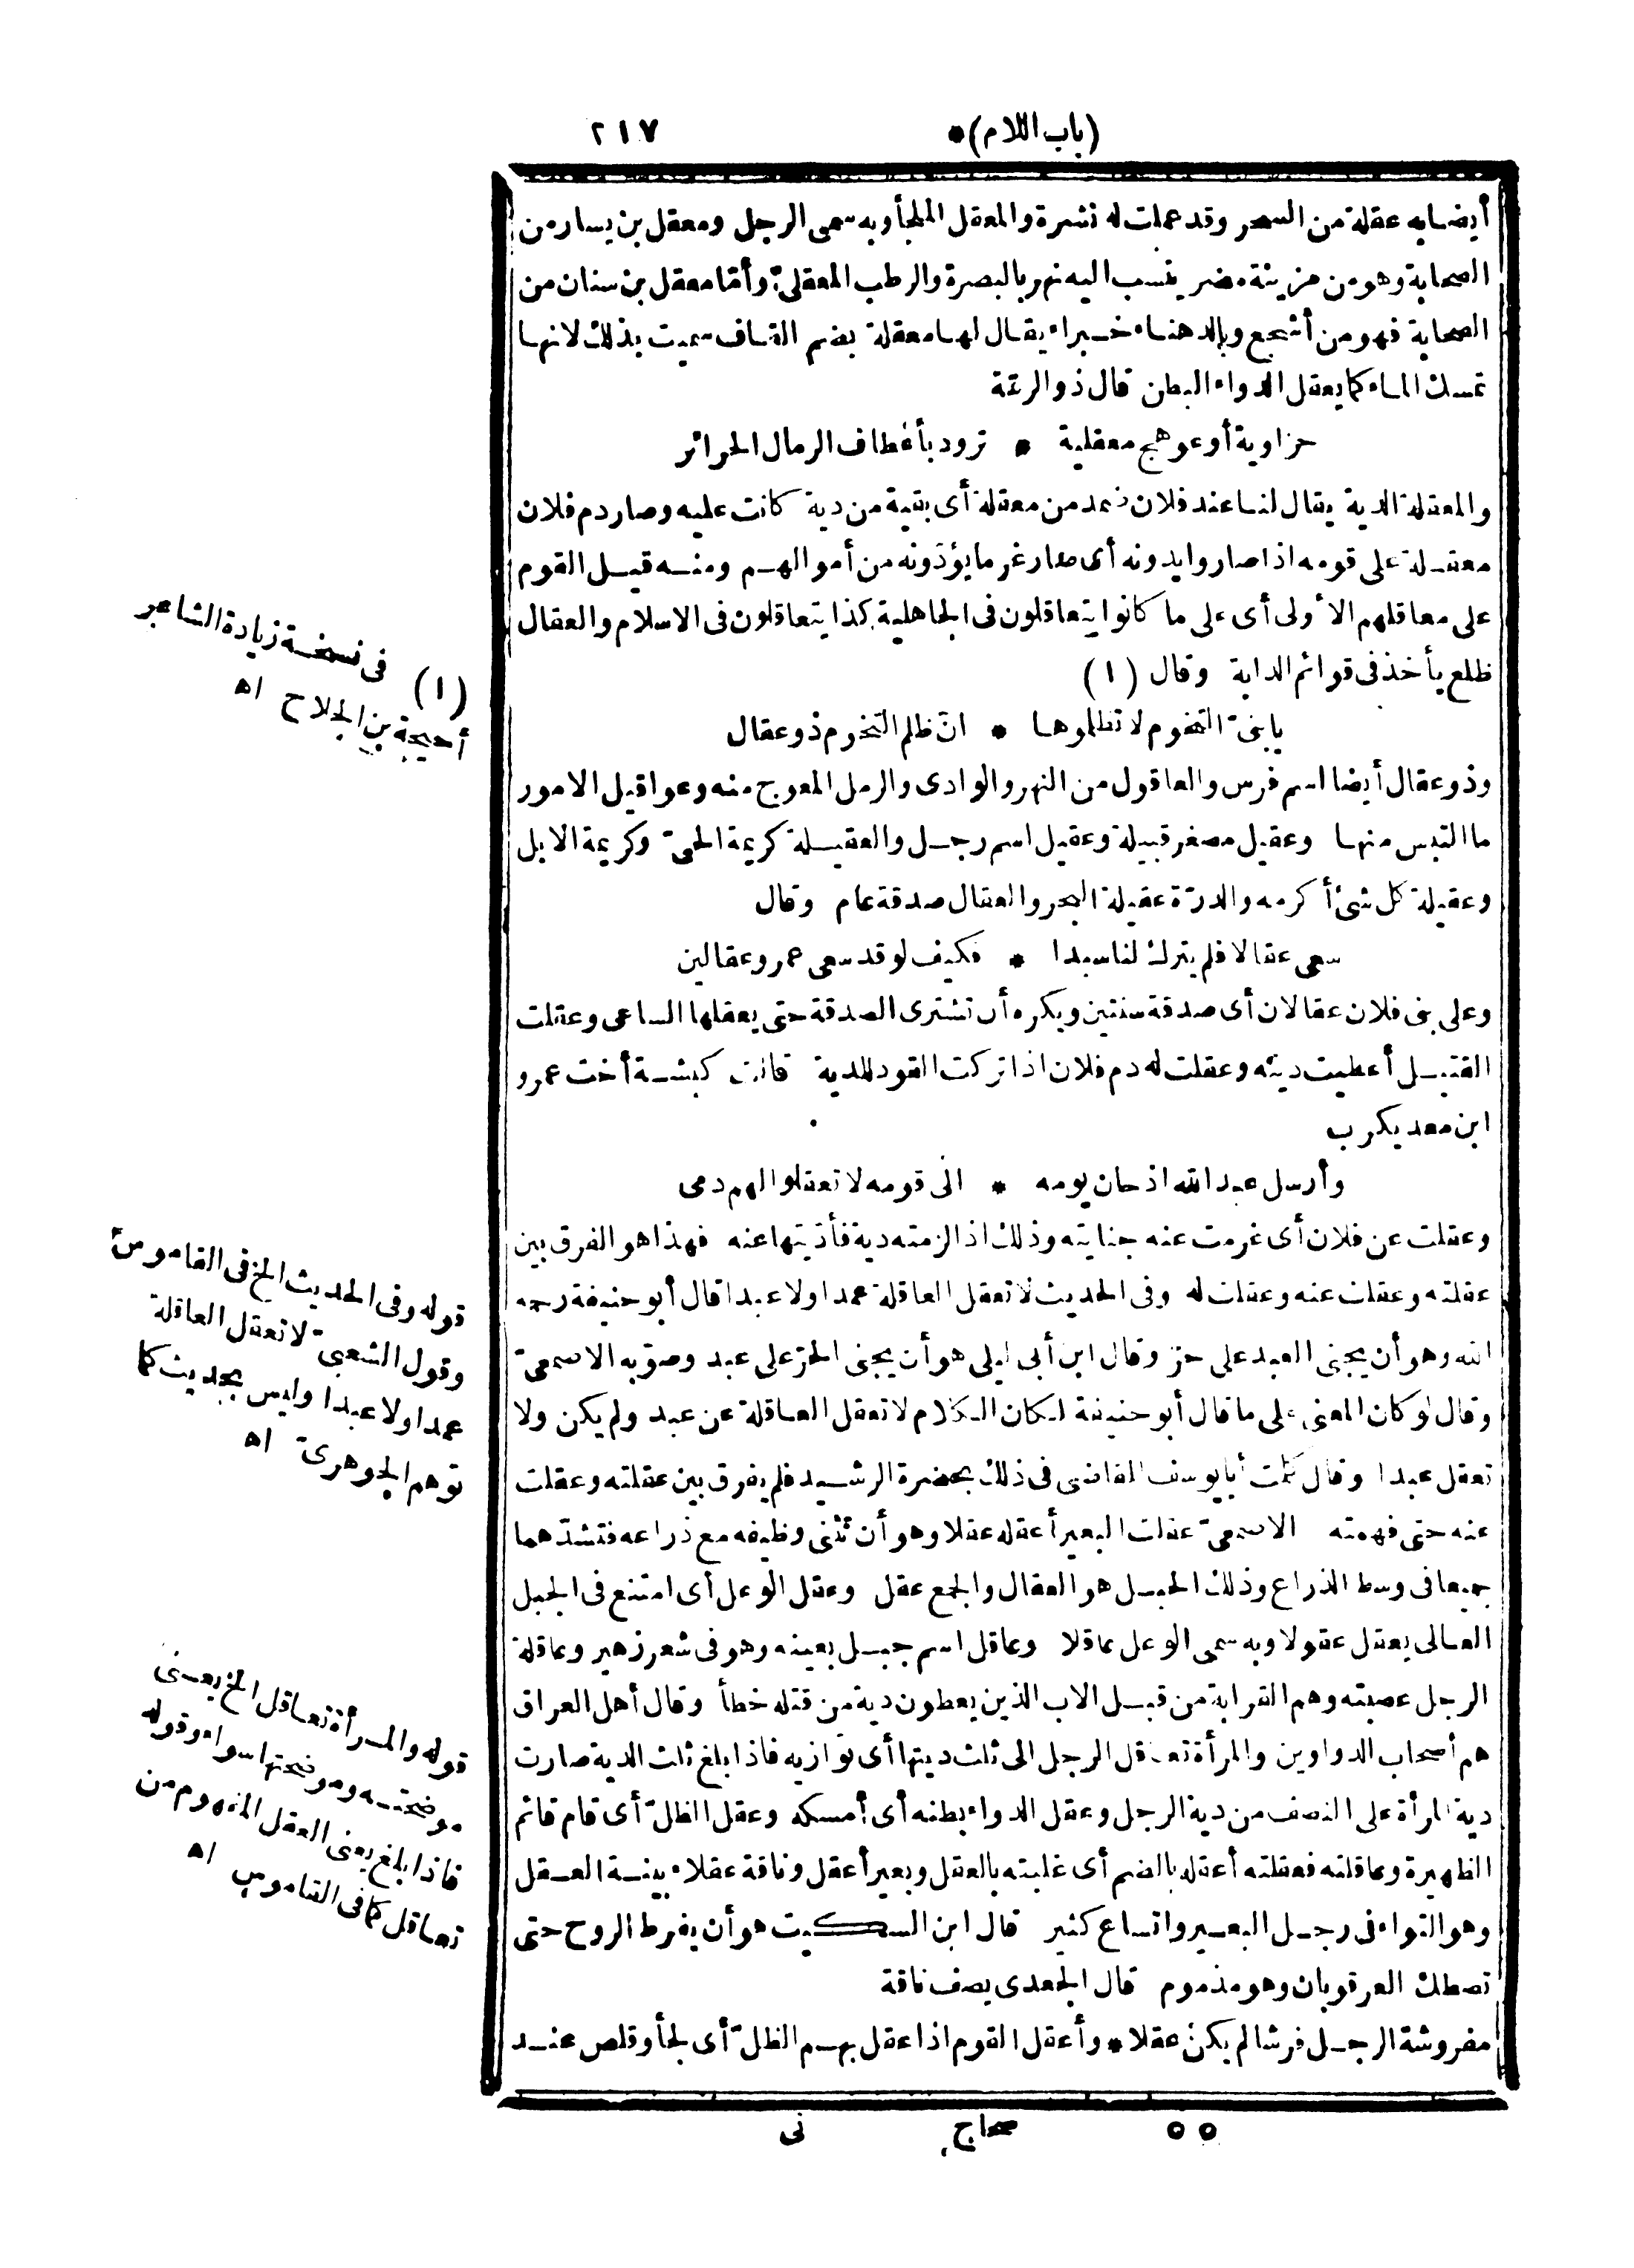 (باب اللام)*
٢١٧
أيضا به عقلة من السحر وقد عملت له نشرة والمعقل الملجأ وبه سمى الرجل ومعقل بن يسار من
الصحابة وهو من مزينة مضر ينسب اليه نهر بالبصرة والرطب المعقلىّ وأمّا معقل بن سنان من
الصحابة فهو من أشجع وبالدهناء خبراء يقال لها معقلة بضم القاف سميت بذلك لانها
تمسك الماء كما يعقل الدواء البطن قال ذو الرمّة
حزاوية أو عوهج معقلية * ترود بأعطاف الرمال الحرائر
والمعقلة الدية يقال لنا عند فلان ضمد من معقلة أى بقية من دية كانت عليه وصار دم فلان
معقلة على قومه اذا صاروا يدونه أى صار غرما يؤدّونه من أموالهم ومنه قيل القوم
على معاقلهم الأولى أى على ما كانوا يتعاقلون فى الجاهلية كذا يتعاقلون فى الاسلام والعقال
ظلع يأخذ فى قوائم الدابة وقال (١)
يا بنىّ التخوم لا تظلموها * انّ ظلم التخوم ذو عقال
وذو عقال أيضا اسم فرس والعاقول من النهر والوادى والرمل المعوج منه وعواقيل الامور
ما التبس منها وعقيل مصغر قبيلة وعقيل اسم رجل والعقيلة كريمة الحىّ وكريمة الابل
وعقيلة كل شئ أكرمه والدرّة عقيلة البحر والعقال صدقة عام وقال
سعى عقالا فلم يترك لنا سبدا * فكيف لو قد سعى عمرو عقالين
وعلى بنى فلان عقالان أى صدقة سنتين ويكره أن تشترى الصدقة حتى يعقلها الساعى وعقلت
القتيل أعطيت ديته وعقلت له دم فلان اذا تركت القود للدية قالت كبشة أخت عمرو
ابن معديكرب
وأرسل عبد الله اذ حان يومه * الى قومه لا تعقلوا لهم دمى
وعقلت عن فلان أى غرمت عنه جنايته وذلك اذا لزمته دية فأدّيتها عنه فهذا هو الفرق بين
عقلته وعقلت عنه وعقلت له وفى الحديث لا تعقل العاقلة عمدا ولا عبدا قال أبو حنيفة رحمه
الله وهو أن يجنى العبد على حرّ وقال ابن أبى ليلى هو أن يجنى الحرّ على عبد وصوّبه الاصمعىّ
وقال لو كان المعنى على ما قال أبو حنيفة لكان الكلام لا تعقل العاقلة عن عبد ولم يكن ولا
تعقل عبدا وقال كلمت أبا يوسف القاضى فى ذلك بحضرة الرشيد فلم يفرق بين عقلته وعقلت
عنه حتى فهمته الاصمعىّ عقلت البعير أعقله عقلا وهو أن تثنى وظيفه مع ذراعه فتشدّهما
جميعا فى وسط الذراع وذلك الحبل هو العقال والجمع عقل وعقل الوعل أى امتنع فى الجبل
العالى يعقل عقولا وبه سمى الوعل عاقلا وعاقل اسم جبل بعينه وهو فى شعر زهير وعاقلة
الرجل عصبته وهم القرابة من قبل الاب الذين يعطون دية من قتله خطأ وقال أهل العراق
هم أصحاب الدواوين والمرأة تعاقل الرجل الى ثلث ديتها أى توازيه فاذا بلغ ثلث الدية صارت
دية المرأة على النصف من دية الرجل وعقل الدواء بطنه أى أمسكه وعقل الظلّ أى قام قائم
الظهيرة وعاقلته فعقلته أعقله بالضم أى غلبته بالعقل وبعير أعقل وناقة عقلاء بينة العقل
وهو التواء فى رجل البعير واتساع كثير قال ابن السكيت هو أن يفرط الروح حتى
تصطك العرقوبان وهو مذموم قال الجعدى يصف ناقة
مفروشة الرجل فرشا لم يكن عقلا* وأعقل القوم اذا عقل بهم الظلّ أى لجأ وقلص عند
(١) فى نسخة زيادة الشاعر
أحيحة بن الجلاح اه
قوله وفى الحديث الخ فى القاموس
وقول الشعبىّ لا تعقل العاقلة
عمدا ولا عبدا وليس بحديث كما
توهم الجوهرىّ اه
قوله والمرأة تعاقل الخ يعنى
موضحته وموضحتها سواء وقوله
فاذا بلغ يعنى العقل المفهوم من
تعاقل كما فى القاموس اه
٥٥
صحاح
نى